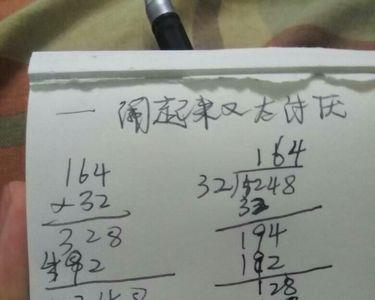 一 闹起来又太讨厌
164
×32
328
492
164
32)5248
32
194
192
128